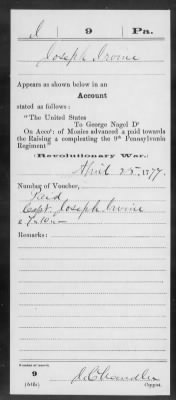 I | 9 | Pa.
Joseph Irvine
Appears as shown below in an
Account
stated as follows:
"The United States
To George Nagel Dr
On Acco't: of Monies advanced a paid towards
the Raising a compleating the 9th Pennsylvania
Regiment"
(Revolutionary War.)
April 25, 1777.
Number of Voucher,
Paid
Capt. Joseph Irvine
Remarks:
Number of record:
9
(546c)
J C Chandler
Copyist.